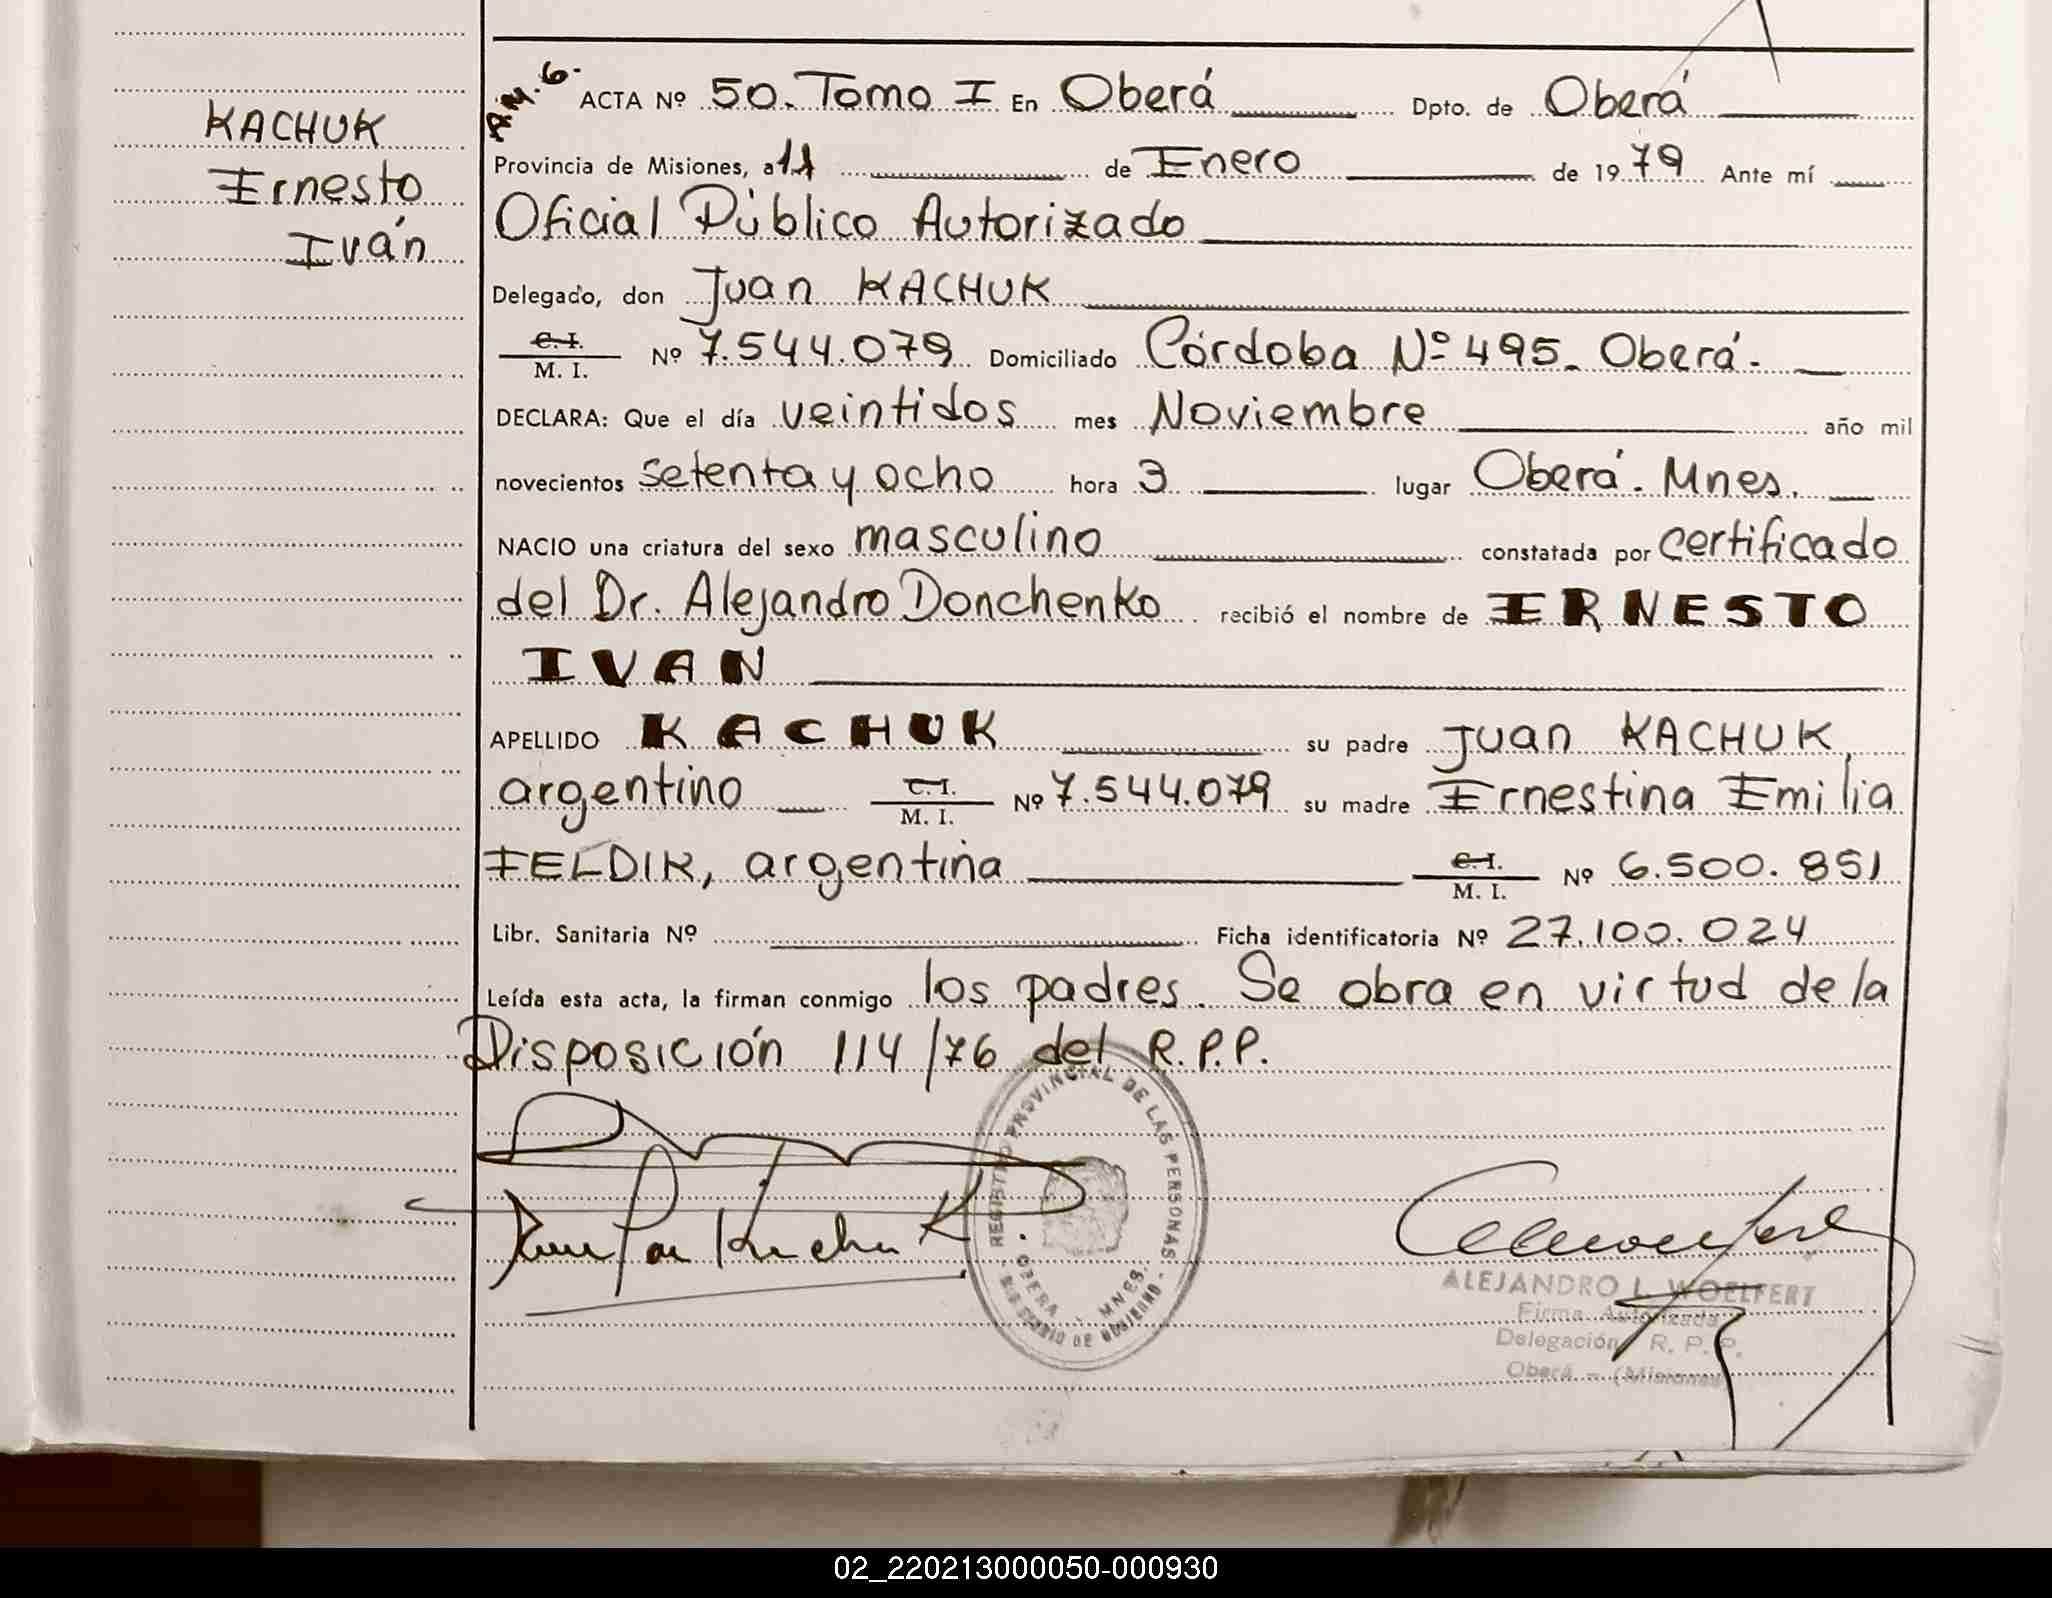 KACHUK
Ernesto
Iván
ACTA Nº 50. Tomo I En Oberá Dpto. de Oberá
Provincia de Misiones, a 11 de Enero de 1979 Ante mí
Oficial Público Autorizado
Delegado, don Juan KACHUK
C. I. / M. I. Nº 7.544.079 Domiciliado Córdoba Nº 495. Oberá.
DECLARA: Que el día veintidos mes Noviembre año mil
novecientos setenta y ocho hora 3 lugar Oberá. Mnes.
NACIO una criatura del sexo masculino constatada por certificado
del Dr. Alejandro Donchenko recibió el nombre de ERNESTO
IVAN
APELLIDO KACHUK su padre Juan KACHUK,
argentino C. I. / M. I. Nº 7.544.079 su madre Ernestina Emilia
FELDIR, argentina C. I. / M. I. Nº 6.500.851
Libr. Sanitaria Nº Ficha identificatoria Nº 27.100.024
Leída esta acta, la firman conmigo los padres. Se obra en virtud de la
Disposición 114/76 del R.P.P.
REGISTRO PROVINCIAL DE LAS PERSONAS
OBERA - MNES.
ALEJANDRO L. WOELFERT
Firma Autorizada
Delegación R. P. P.
Oberá - (Misiones)
02_220213000050-000930